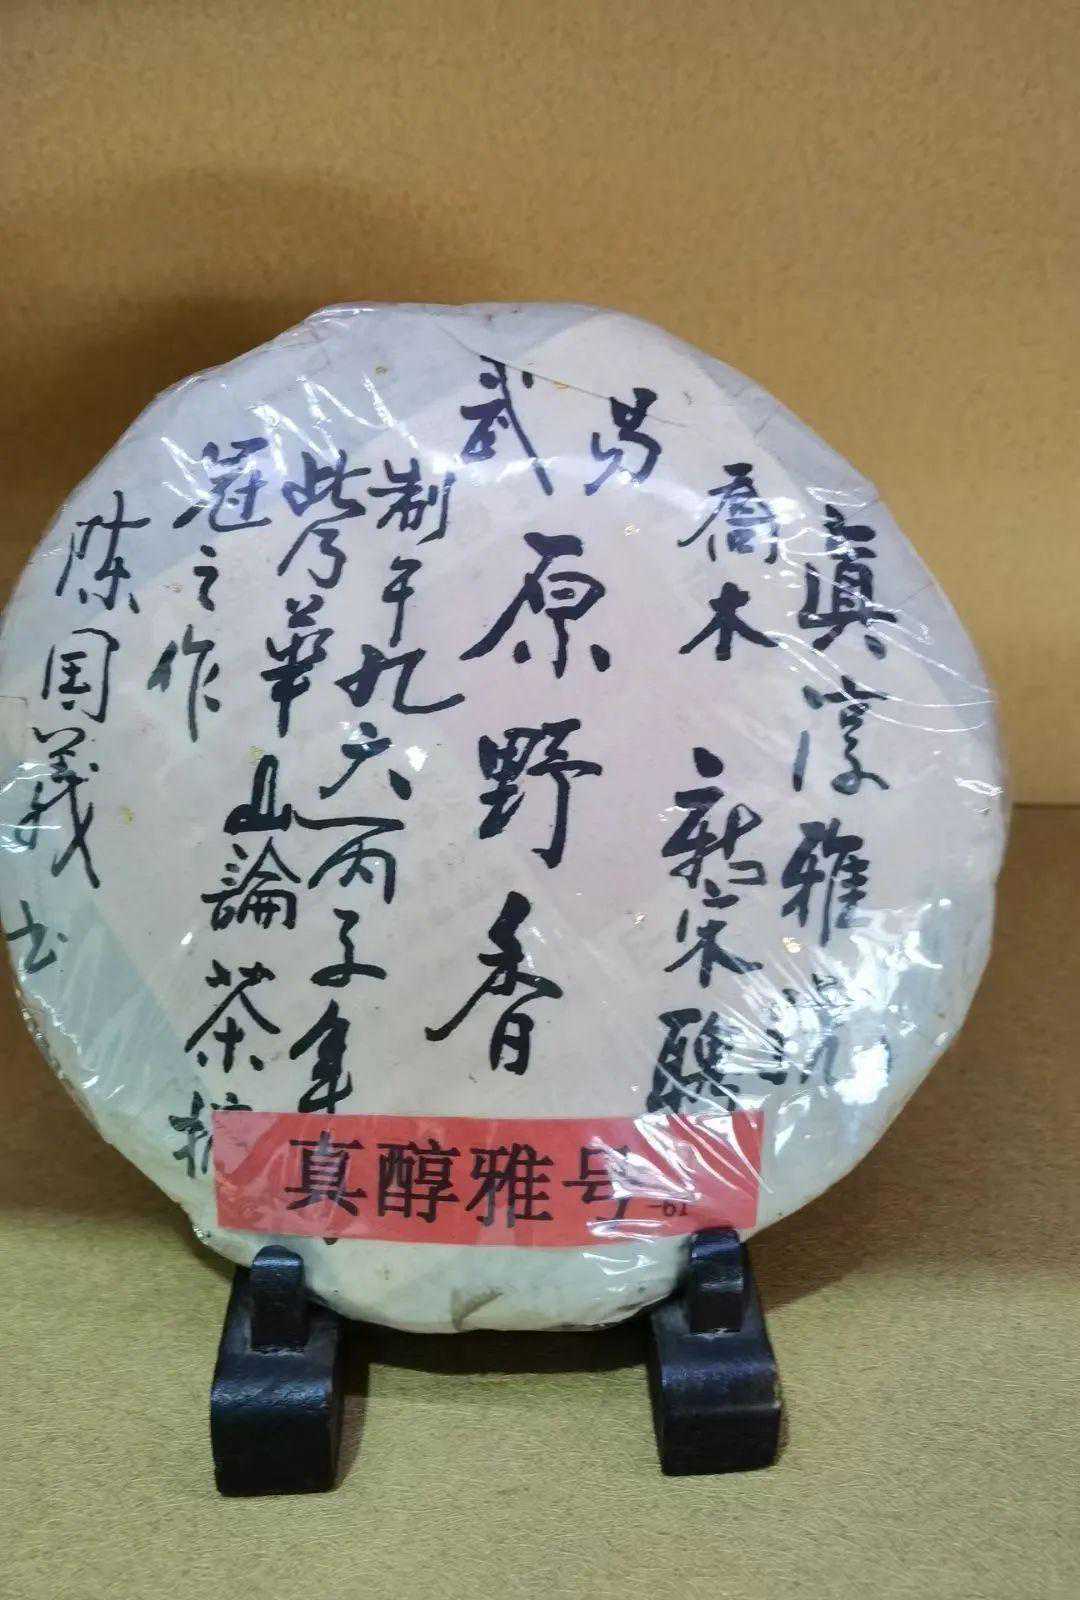 真淳雅號
喬木
易武
原野香
制于九六丙子年
此乃華山論茶
冠之作
陈国義书
真醇雅号
-61